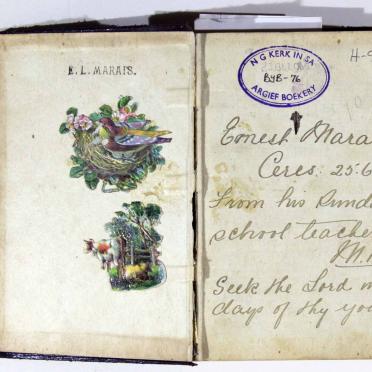 E. L. MARAIS.
N G KERK IN SA
BYB-76
ARGIEF BOEKERY
Ernest Mara
Ceres. 25.6
From his Sund
school teache
M.
Seek the Lord
days of thy you